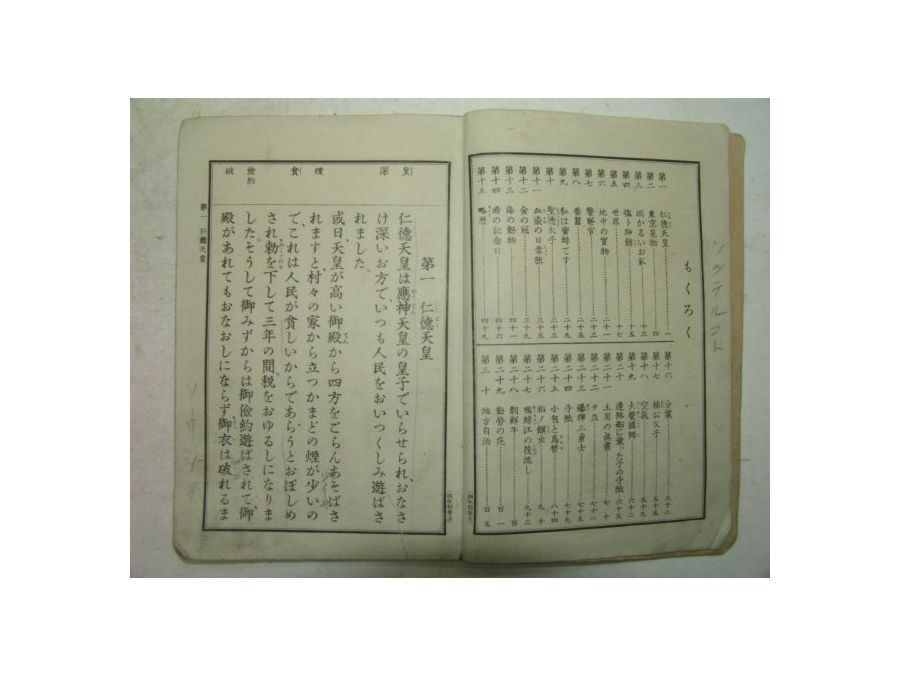 もくろく
第一 仁德天皇 一
第二 東京見物 四
第三 明かるいお家 十二
第四 塩ト砂糖 十五
第五 世界 十七
第六 地中の寶物 二十一
第七 警察官
第八 養蠶 二十五
第九 私は蜜蜂です 二十九
第十 聖德太子
第十一 血染の日章旗
第十二 金の冠 三十九
第十三 海の動物
第十四 時の記念日
第十五 略曆 四十九
第十六 分業 五十二
第十七 楠公父子
第十八 空氣
第十九 大覺國師 六十二
第二十 連絡船に乗った子の手紙 六十五
第二十一 土用の眞晝 七十
第二十二 夕立 七十二
第二十三 爆彈三勇士 七十五
第二十四 手紙 七十九
第二十五 小包と爲替 八十四
第二十六 稻ノ螟虫 九十
第二十七 鴨綠江の筏流し 九十三
第二十八 朝鮮牛 百
第二十九 勤勞の花 百一
第三十 地方自治 百五
皇
深
煙
貧
儉約
破
第一 仁德天皇
仁德天皇は應神天皇の皇子でいらせられ、おなさ
け深いお方で、いつも人民をおいつくしみ遊ばさ
れました。
或日、天皇が高い御殿から四方をごらんあそばさ
れますと、村々の家から立つかまどの煙が少いの
で、これは人民が貧しいからであらうとおぼしめ
され、勅を下して三年の間、税をおゆるしになりま
した。そうして御みずからは御儉約遊ばされて、御
殿があれてもおなおしにならず、御衣は破れるま
第一 仁德天皇